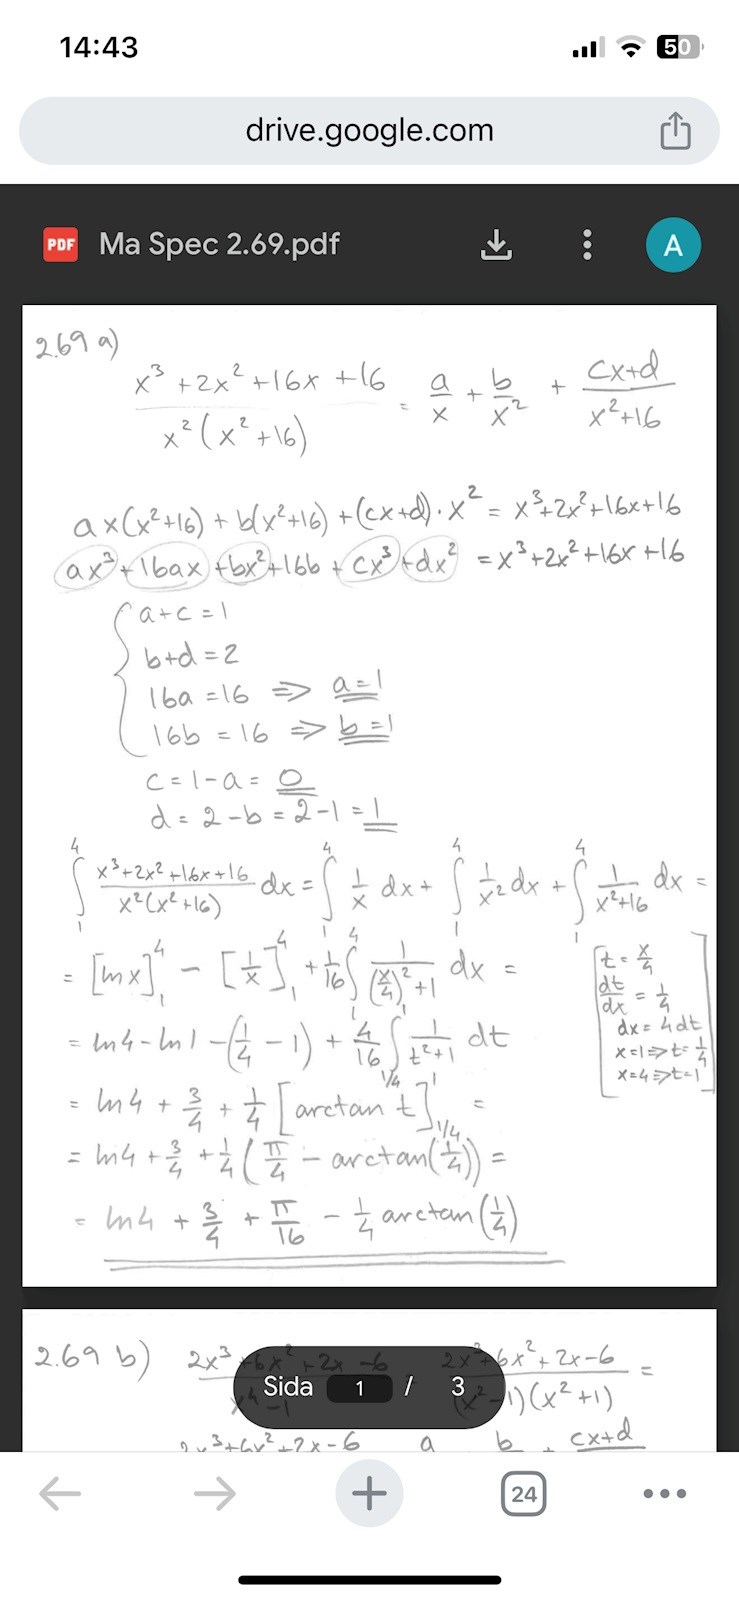 14:43
50
drive.google.com
PDF Ma Spec 2.69.pdf A
2.69 a)
x³ + 2x² + 16x + 16 / x² (x² + 16) = a/x + b/x² + cx+d / x²+16
ax(x²+16) + b(x²+16) + (cx+d)·x² = x³+2x²+16x+16
ax³ + 16ax + bx² + 16b + cx³ + dx² = x³+2x²+16x+16
a+c = 1
b+d = 2
16a = 16 => a=1
16b = 16 => b=1
c = 1-a = 0
d = 2-b = 2-1 = 1
∫₁⁴ x³+2x²+16x+16 / x²(x²+16) dx = ∫₁⁴ 1/x dx + ∫₁⁴ 1/x² dx + ∫₁⁴ 1/x²+16 dx =
= [ln x]₁⁴ - [1/x]₁⁴ + 1/16 ∫₁⁴ 1/(x/4)²+1 dx =
[t = x/4
dt/dx = 1/4
dx = 4dt
x=1 => t = 1/4
x=4 => t=1]
= ln4 - ln1 - (1/4 - 1) + 4/16 ∫_{1/4}^1 1/t²+1 dt
= ln4 + 3/4 + 1/4 [arctan t]_{1/4}^1 =
= ln4 + 3/4 + 1/4 (π/4 - arctan(1/4)) =
= ln4 + 3/4 + π/16 - 1/4 arctan(1/4)
2.69 b) 2x³+6x²+2x-6 / x⁴-1 2x³+6x²+2x-6 / (x²-1)(x²+1) =
2x³+6x²+2x-6 a b + cx+d
Sida 1 / 3
24